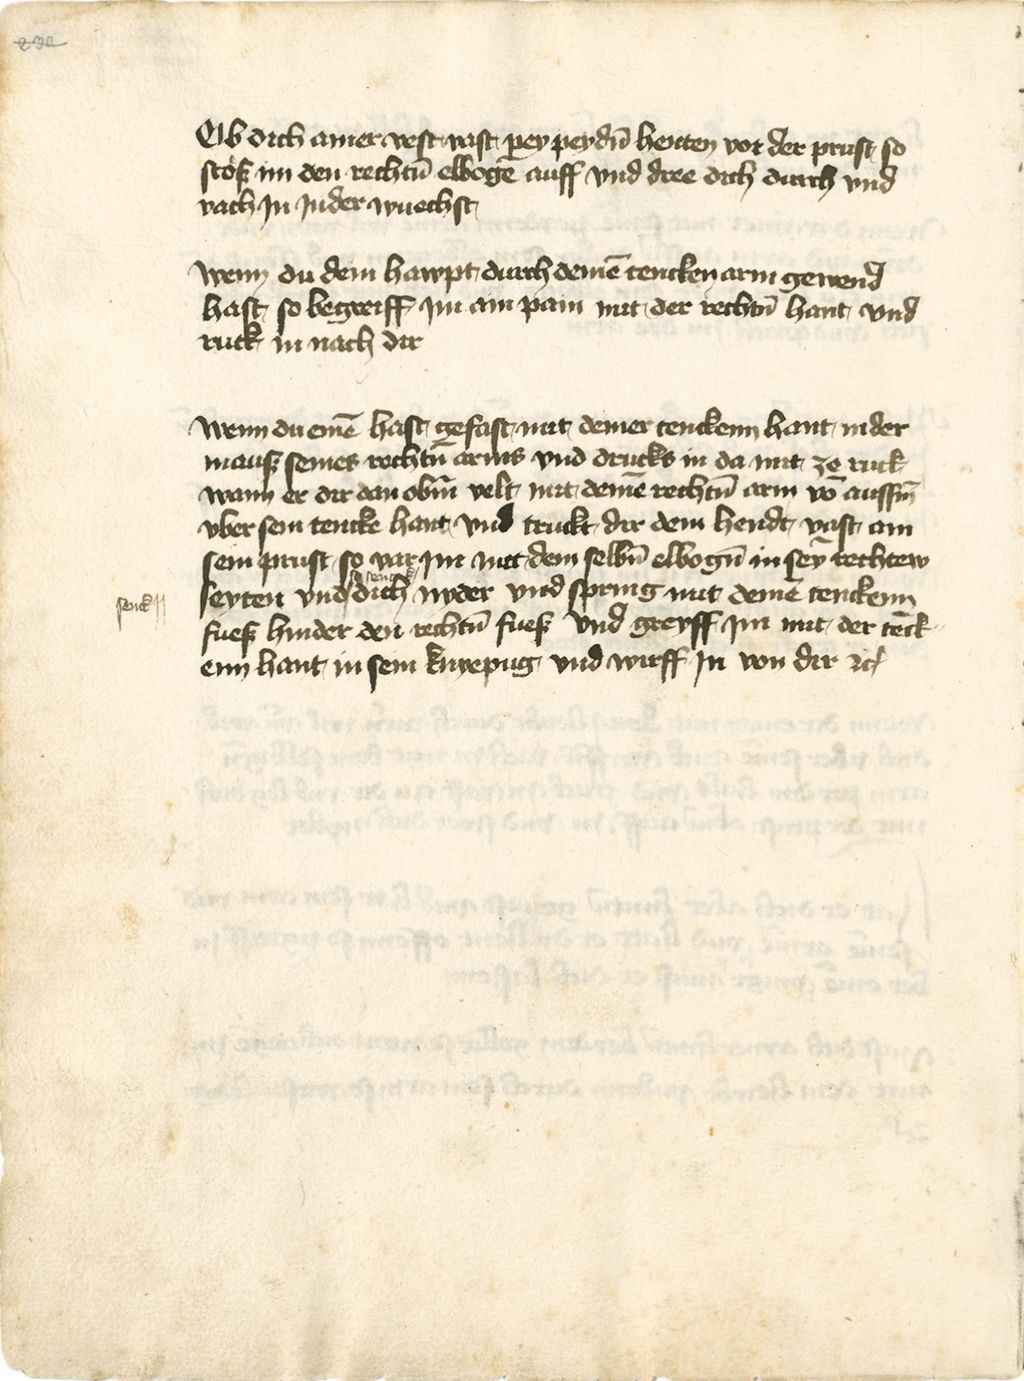 232
Ob dich ainer vest vast pey peydn̄ henten vor der prust so
stös im den rechtn̄ elbogē auff vnd dree dich durch vnd
vach In In der wuechst
Wenn du dein hawpt durch deinē tencken arm gewend
hast so begreiff Im ain pain mit der rechtn̄ hant vnd
ruck in nach dir
Wenn du einē hast gefast mit deiner tenckenn hant in der
mauß seines rechtn̄ arms vnd drucks in da mit ze ruck
wann er dir dan obn̄ velt mit deinē rechtn̄ arm vō aussn̄
vber sein tencke hant vnd truckt dir dein hendt vast am
sein prust so var im mit dem selbn̄ elbogn̄ in sey̅ rechtew
senck
seyten vnd dich nyder vnd spring mit deinē tenckenn
senck
fueß hinder den rechtn̄ fueß vnd greyff Im mit der tēck
enn hant in sein knyepug vnd wirff In von dir ꝛc